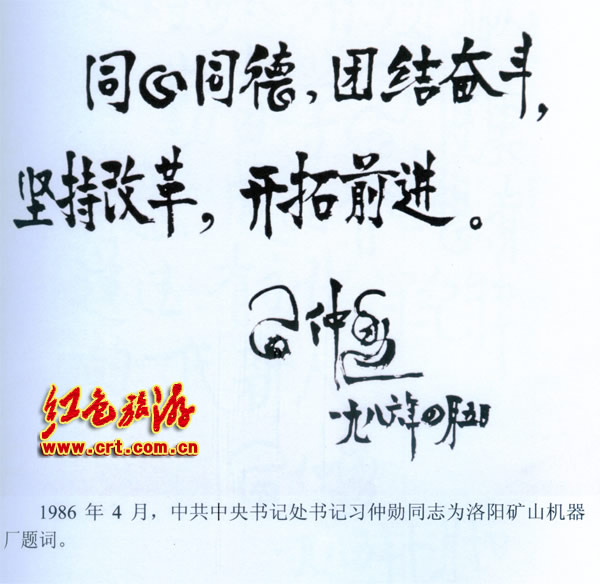 同心同德，团结奋斗，
坚持改革，开拓前进。
习仲勋
一九八六年四月五日
红色旅游
www.crt.com.cn
1986 年 4 月，中共中央书记处书记习仲勋同志为洛阳矿山机器
厂题词。